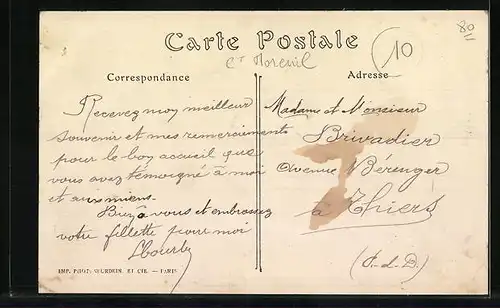 80
Carte Postale
10
Ct Moreuil
Correspondance
Adresse
Recevez moy meilleur
souvenir et mes remerciments
pour le boy accueil que
vous avez témoigné à moi
et aux miens.
Biey à vous et embrassez
votre fillette pour moi
Madame et Monsieur
Brivadier
Avenue Bérenger
à Thiers
(P-d-D)
IMP. PHOT. BOURDEIN, ET CIE. — PARIS